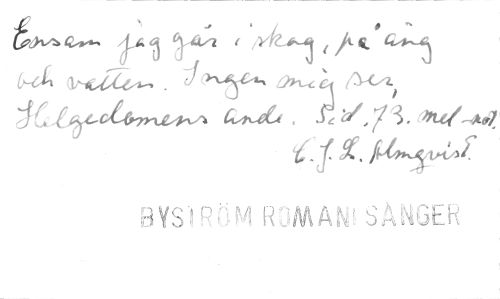 Ensam jag går i skog, på äng
och vatten. Ingen mig ser,
Helgedomens ande. Sid. 73. mel-not.
C. J. L. Almqvist.
BYSTRÖM ROMANSÅNGER